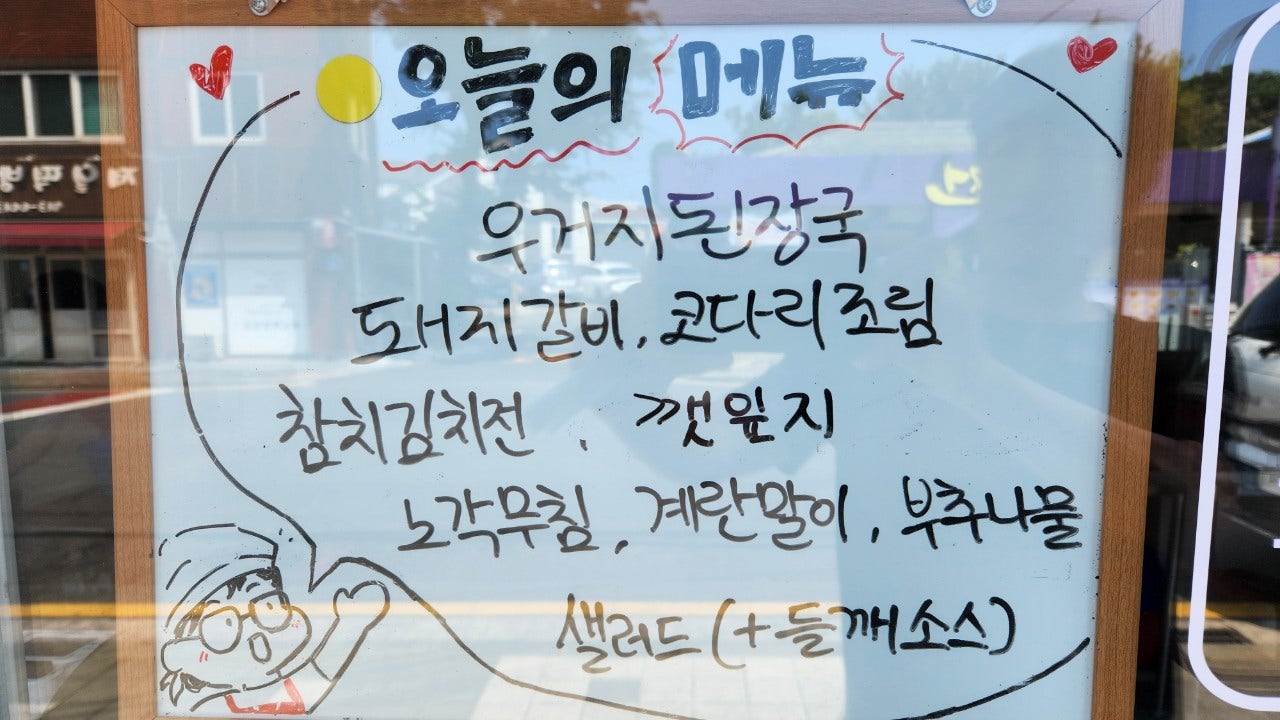 오늘의 메뉴
우거지된장국
돼지갈비, 코다리조림
참치김치전 . 깻잎지
노각무침, 계란말이, 부추나물
샐러드 (+들깨소스)